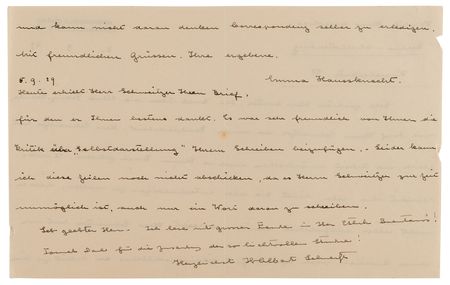 und kann nicht daran denken Correspondenz selber zu erledigen.
Mit freundlichen Grüssen. Ihre ergebene.
Emma Haussknecht.
5.9.29
Heute erhielt Herr Schweitzer Ihren Brief,
für den er Ihnen bestens dankt. Es war sehr freundlich von Ihnen die
Kritik über "Selbstdarstellung" Ihrem Schreiben beizufügen. Leider kann
ich diese Zeilen noch nicht abschicken, da es Herrn Schweitzer zur Zeit
unmöglich ist, auch nur ein Wort daran zu schreiben.
geehrter Herr. Ich lese mit grosser Freude in
Dank für die
Herzlichst Ihr Albert Schweitzer